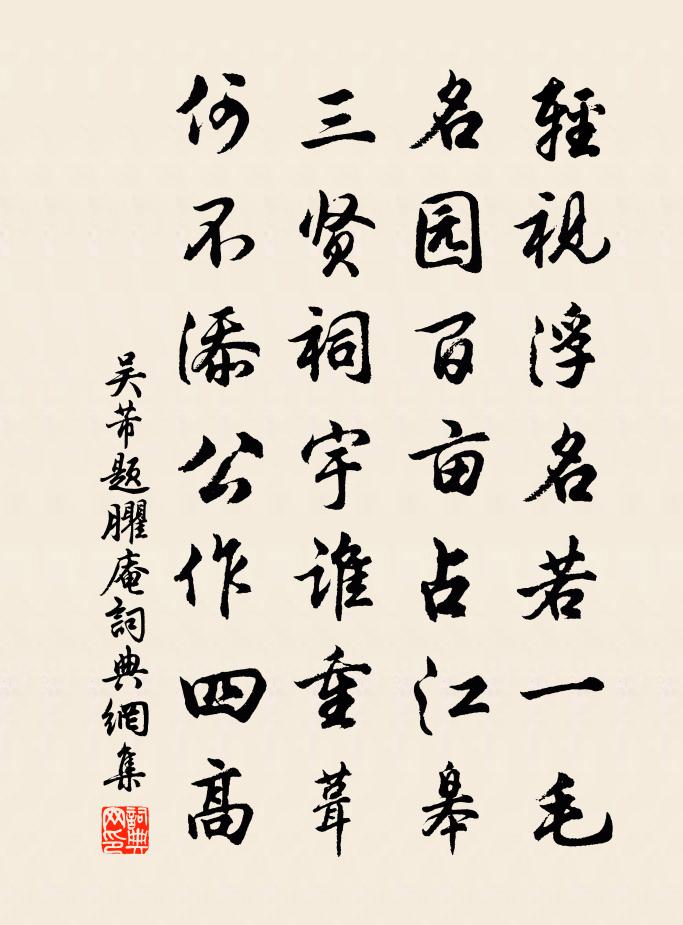 輕視浮名若一毛
名园百亩占江皋
三贤祠宇谁重葺
何不添公作四高
吴芾题臞庵詞典網集
詞典
网印